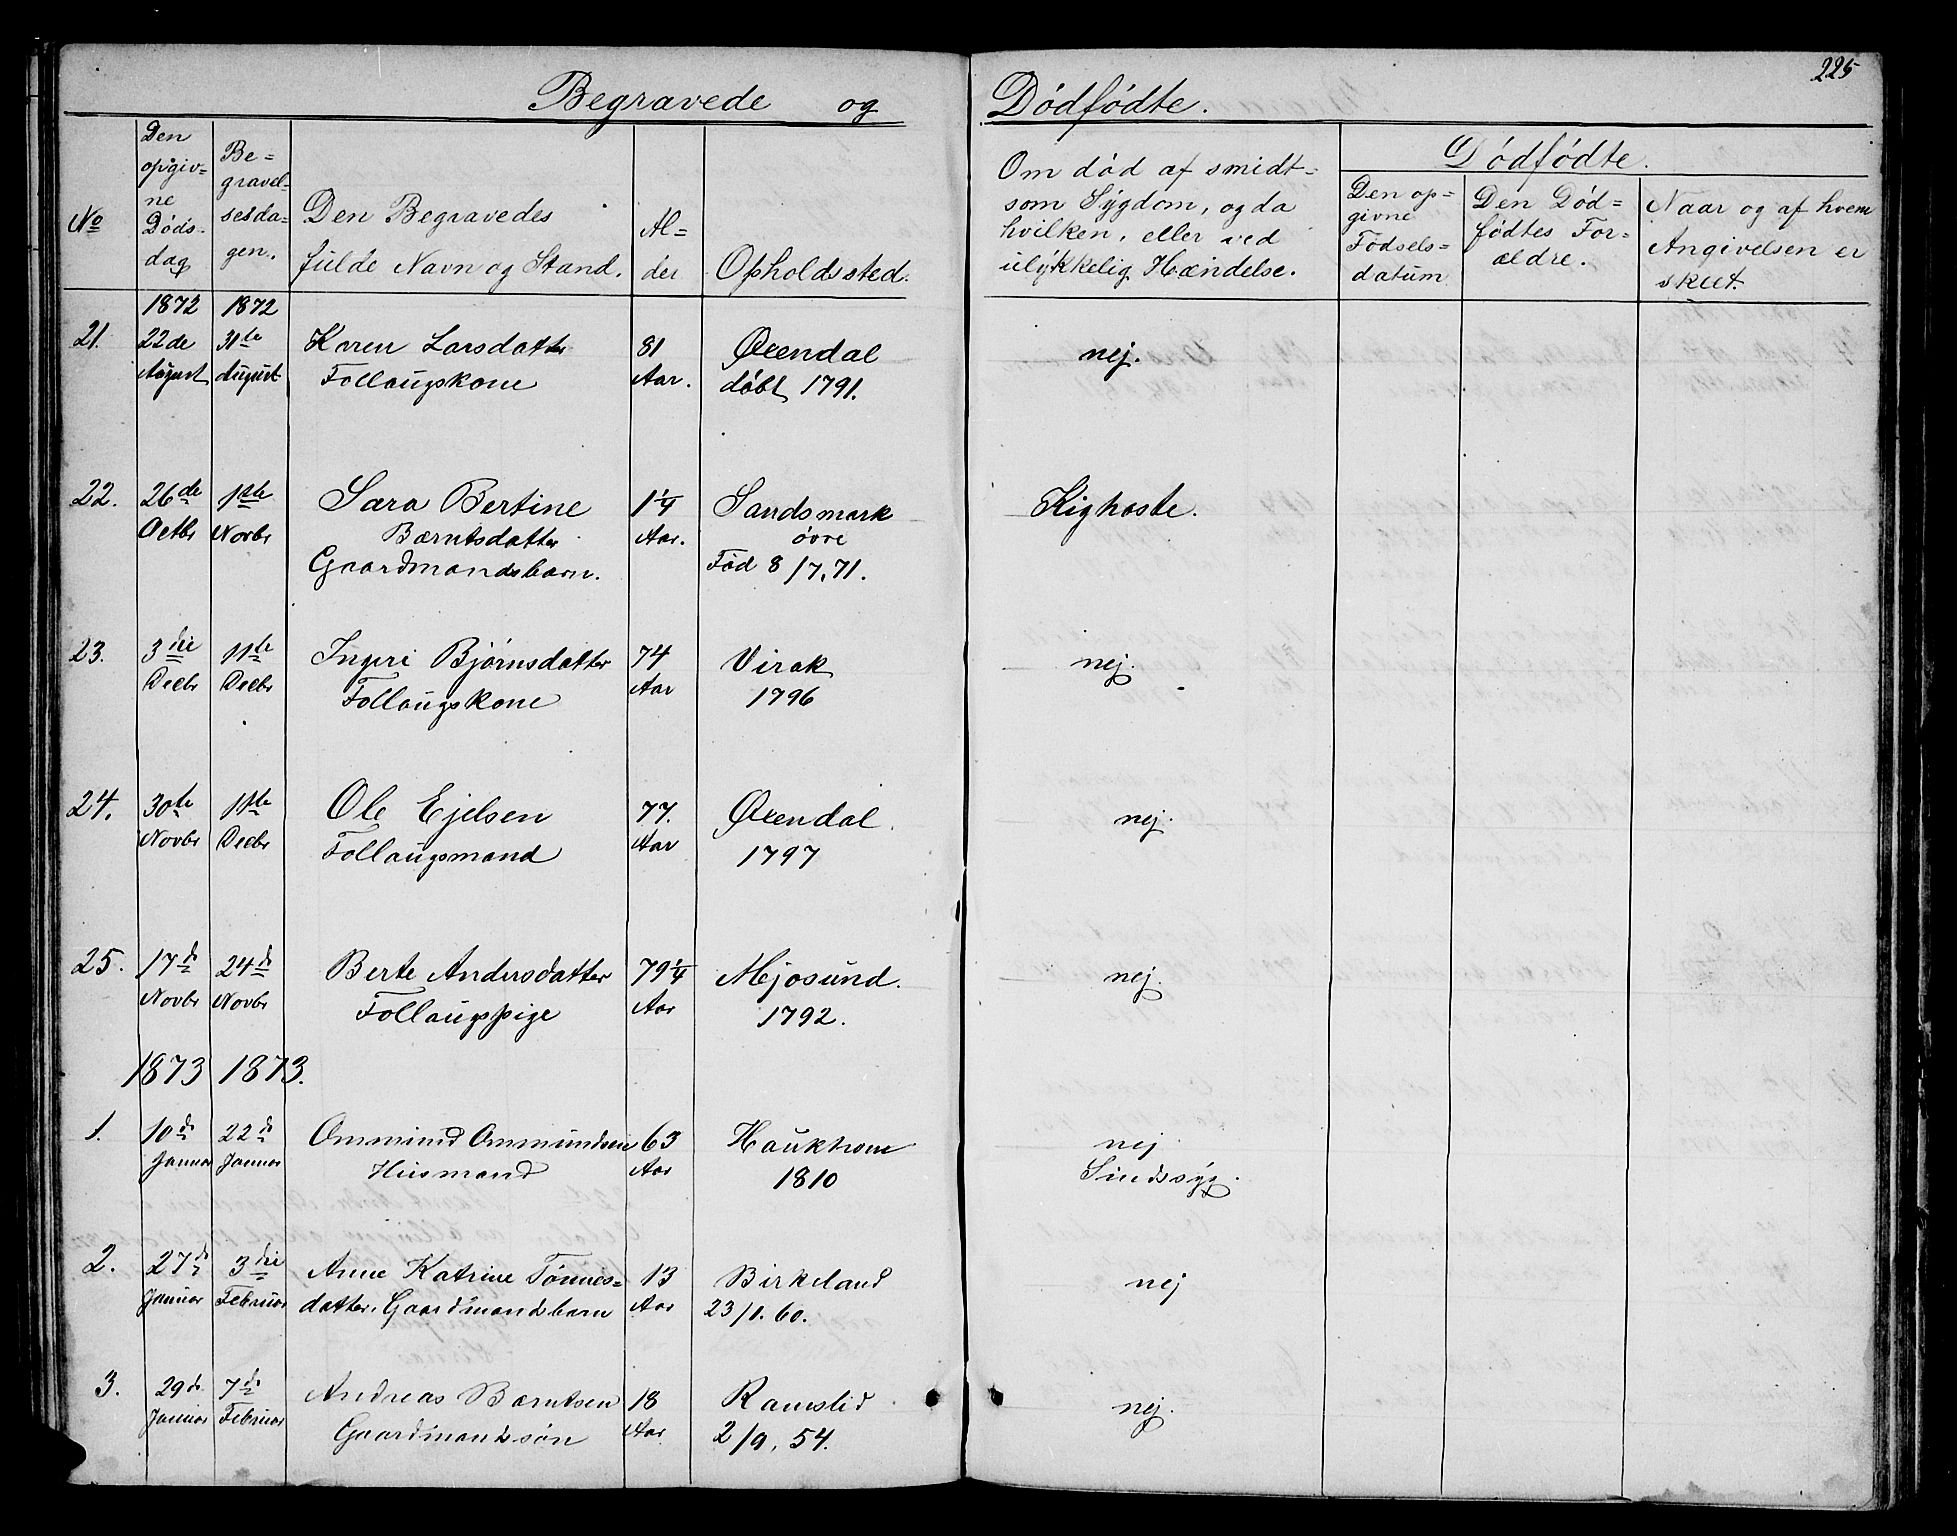 225
Begravede og Dødfødte.
No
Den opgivne Dødsdag
Begravelsesdagen.
Den Begravedes fulde Navn og Stand.
Alder
Opholdssted.
Om død af smidtsom Sygdom, og da hvilken, eller ved ulykkelig Hændelse.
Dødfødte.
Den opgivne Fødselsdatum
Den Dødfødtes Forældre.
Naar og af hvem Angivelsen er skeet.
1872 1872
21. 22de 31te Karen Larsdatter 81 Øxendal nej.
August August Follaugskone Aar. døbt 1791.
22. 26de 1ste Sara Bertine 1 1/4 Sandsmark Kighoste.
Octbr Novbr Berntsdatter Aar. øvre
Gaardmandsbarn. Fød 8/7.71.
23. 3die 11te Ingeri Bjørnsdatter 74 Virak nej.
Decbr Decbr Follaugskone Aar 1796
24. 30te 11te Ole Ejelsen 77. Øxendal. nej.
Novbr Decbr Follaugsmand Aar 1797
25. 17de 24de Berte Andersdatter 79 1/4 Mjosund. nej.
Novbr Novbr Follaugspige Aar 1792.
1873 1873.
1. 10de 22de Ommund Ommundsen 63 Haukhom nej
Januar Januar Husmand Aar 1810 Sindssyg.
2. 27de 3die Anne Katrine Tønnes= 13 Birkeland nej
Januar Februar datter, Gaardmandsbarn Aar 23/1. 60.
3. 29de 7de Andreas Berntsen 18 Ramslid nej.
Januar Februar Gaardmandssøn Aar 2/9, 54.